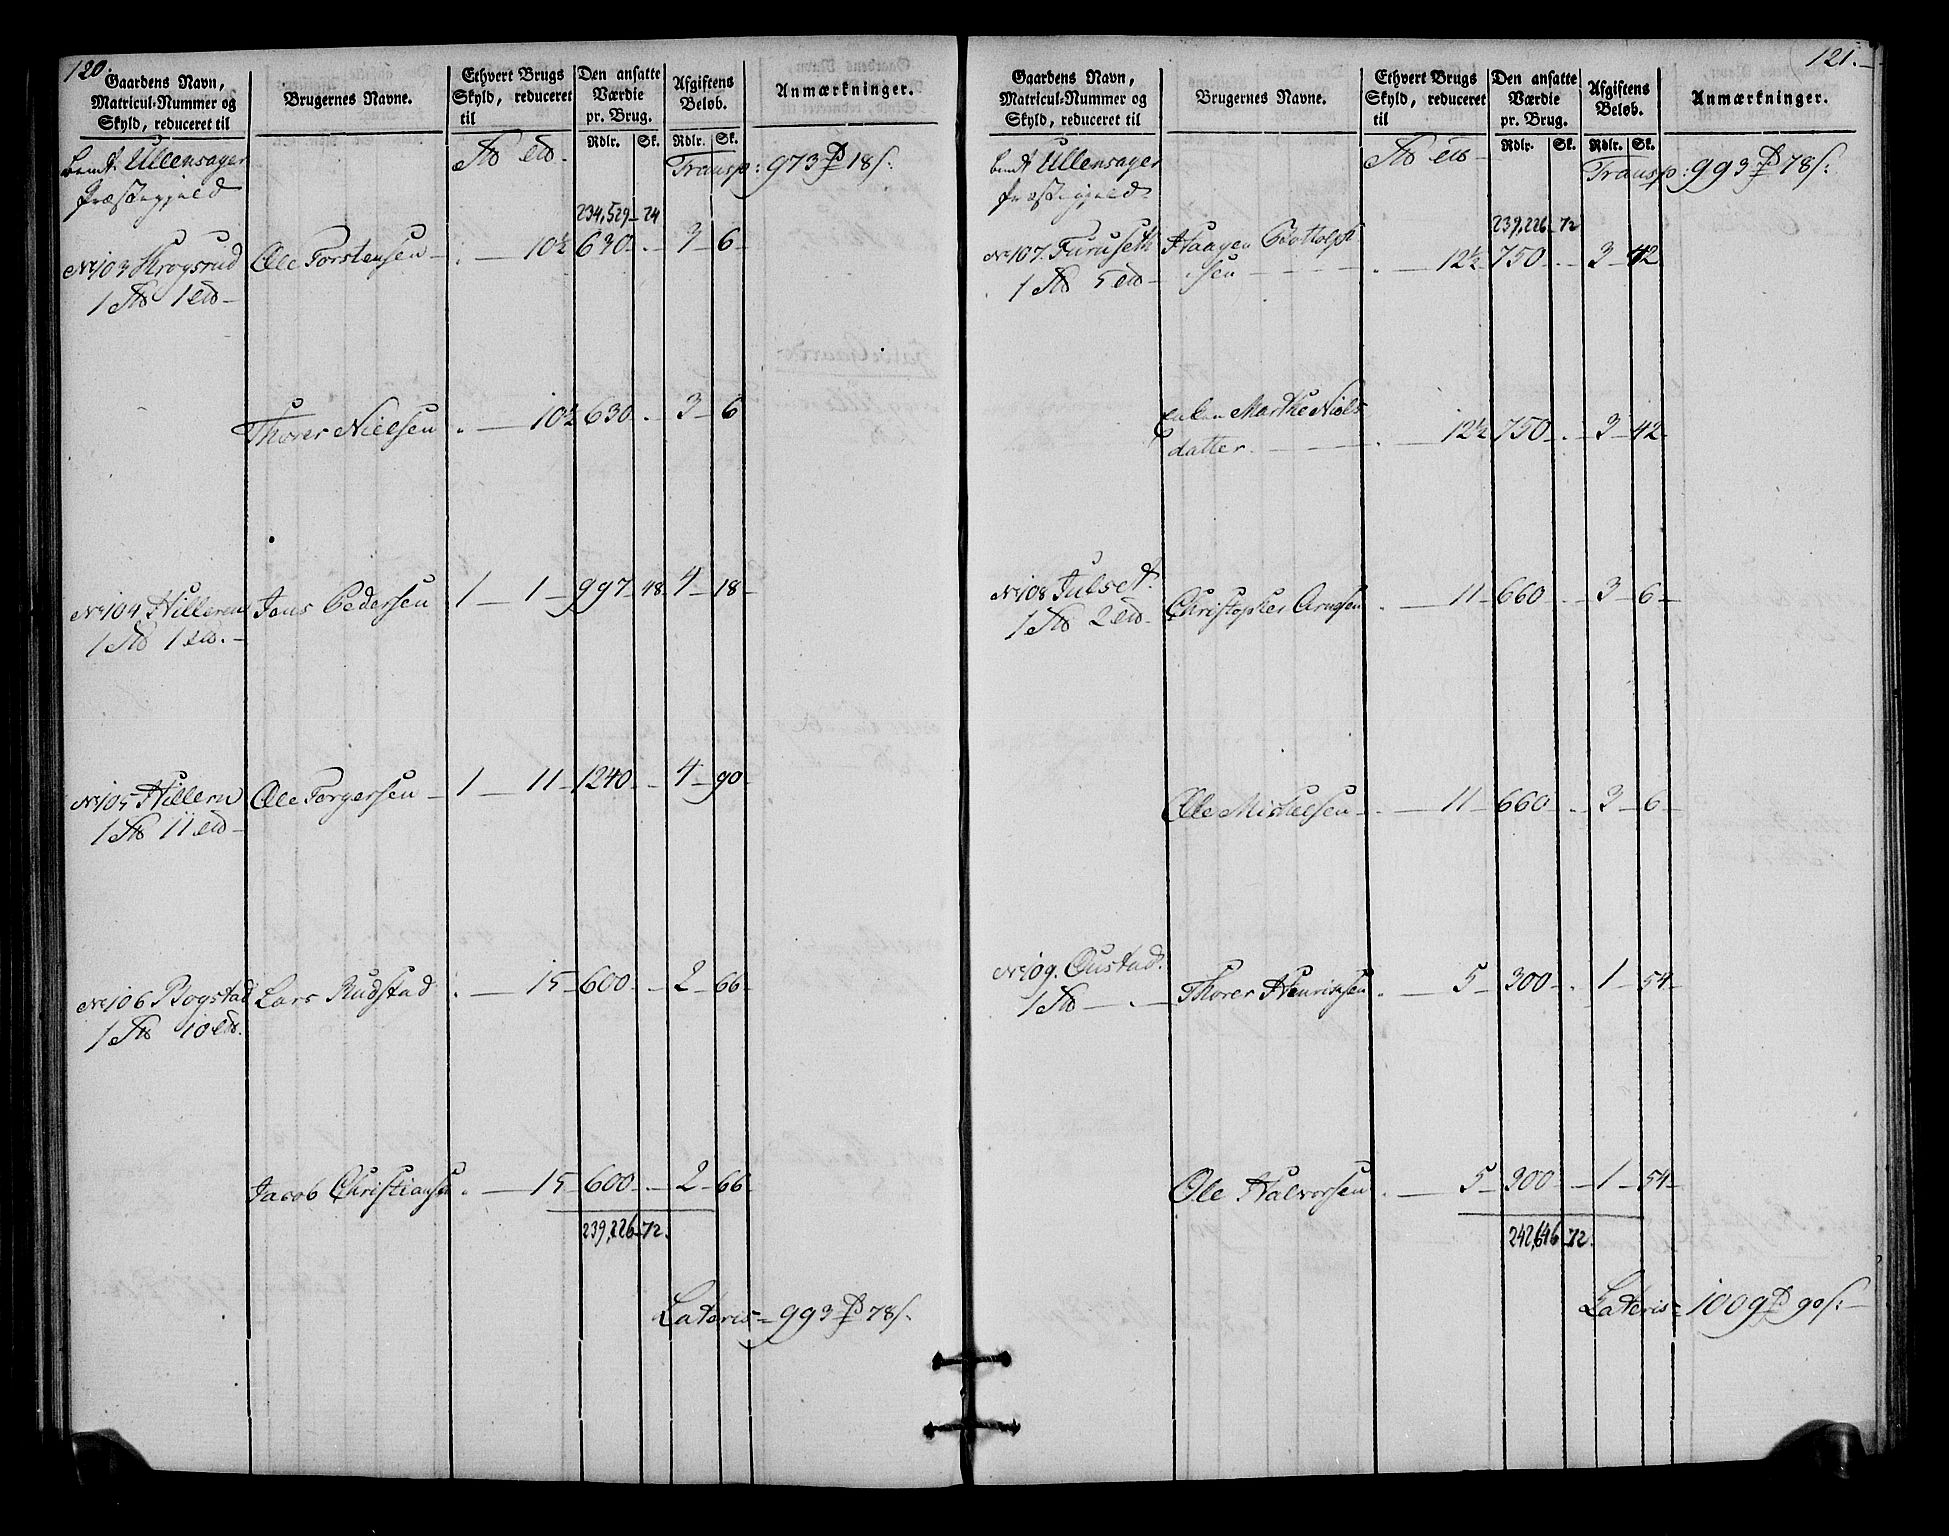 120.
Gaardens Navn,
Matricul-Nummer og
Skyld, reduceret til
Brugernes Navne.
Ethvert Brugs
Skyld, reduceret
til
Den ansatte
Værdie
pr. Brug.
Rdlr. Sk.
Afgiftens
Beløb.
Rdlr. Sk.
Anmærkninger.
Ullensager
Præstegjeld
Transp: 973 18 s.
234,529 - 24
No 103 Krogsrud Ole Torstensen - . - 10½ 630 - . - 3 - 6 -
1 1
Thorer Nielsen . - 10½ 630 . - 3 - 6
No 104 Hilleren Jens Pedersen 1 - 1 - 997 48 - 4 - 18 -
1 1
No 105 Hillern Ole Torgersen - 1 - 11 - 1240 - . - 4 - 90 -
1 11
No 106 Bogstad Lars Rudstad . - 15 - 600 - . - 2 - 66 -
1 10
Jacob Christiansen . - 15 - 600 - . - 2 - 66 -
239,226 - 72.
Lateris = 993 78 s.
121. -
Gaardens Navn,
Matricul-Nummer og
Skyld, reduceret til
Brugernes Navne.
Ethvert Brugs
Skyld, reduceret
til
Den ansatte
Værdie
pr. Brug.
Rdlr. Sk.
Afgiftens
Beløb.
Rdlr. Sk.
Anmærkninger.
Ullensager
Præstegjeld
Transp: 993 78 s.
239,226 - 72
No 107. Furuseth Haagen
1 5 sen - . - 12½ 750 - . - 3 - 42
Marthe Niels
datter. - . - 12½ 750 - . - 3 - 42 -
No 108 Julset.
1 2 Christopher Arnesen . - 11 - 660 - . - 3 - 6 -
Ole Michelsen - . - 11 - 660 - . - 3 - 6 -
No 109. Oustad.
1 - . - Thorer Henrichsen . - 5 - 300 - . - 1 - 54 -
Ole Halvorsen . - 5 - 300 - . - 1 - 54 -
242,646 - 72.
Lateris = 1009 90 s. -